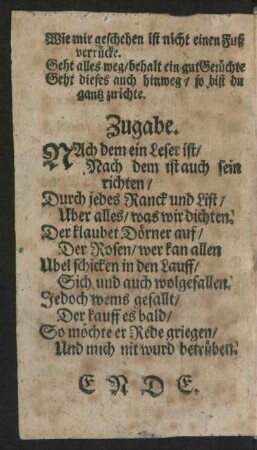 Wie mir geschehen ist nicht einen Fuß
verrücke.
Geht alles weg/behalt ein gut Gerüchte
Geht dieses auch hinweg/ so bist du
gantz zu nichte.
Zugabe.
NAch dem ein Leser ist/
Nach dem ist auch sein
richten/
Durch jedes Ranck und List/
Uber alles/ was wir dichten.
Der klaubet Dörner auf/
Der Rosen/ wer kan allen
Ubel schicken in den Lauff/
Sich und auch wolgefallen.
Jedoch wems gefallt/
Der kauff es bald/
So möchte er Rede griegen/
Und mich nit wurd betrüben.
ENDE.